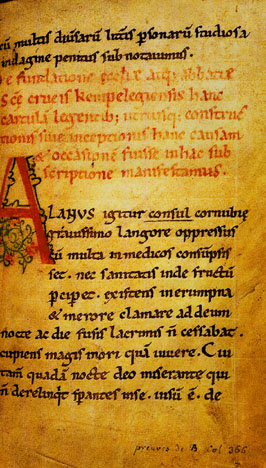 cū multis diuersarū psonarū studiosa
indagine penitus subnotauimus.
De fundatione ęcclię atq; abbatię
Scę crucis Kempelegiensis hanc
cartulā legentib; utriusq; construc
tionis siue inceptionis hanc causam
& occasionē fuisse in hac sub
scriptione manifestamus.
ALANUS igitur consul cornubię
grauissimo langore oppressus
cū multa in medicos consūpsis
set. nec sanitatis inde fructū
pciperet. existens in erumpna
& merore clamare ad deum
nocte ac die fusis lacrimis n̄ cessabat.
cupiens magis mori quā uiuere. Cui
quadā nocte deo miserante qui
n̄ derelinqt sperantes in se. ē. de
preuves de B. Col 366